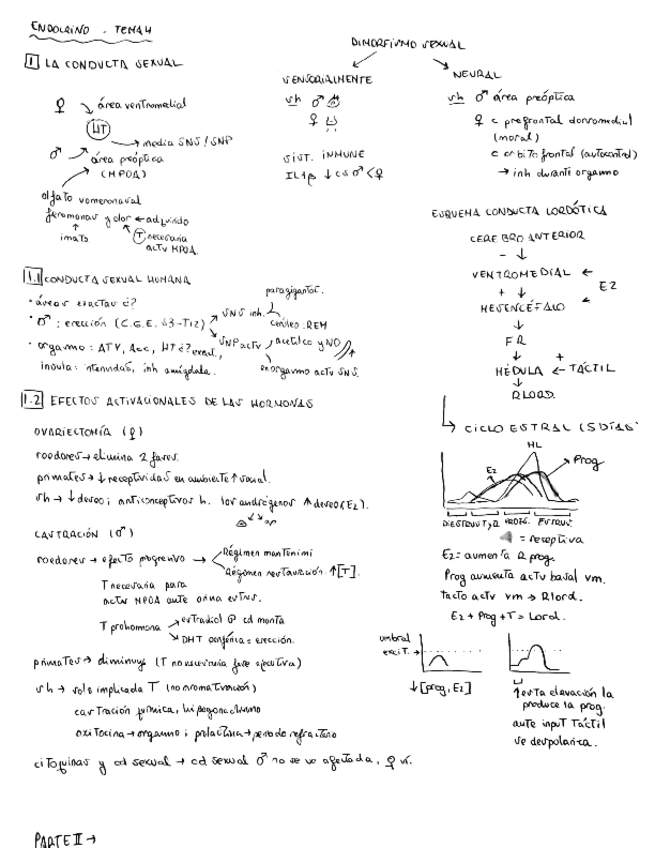 ENDOCRINO - TEMA 4
1 LA CONDUCTA SEXUAL
♀ área ventromedial
HT
→ media SNS / SNP
♂ área preóptica
(MPOA)
olfato vomeronasal
feromonas y olor ← adquirido
↑ innato
T necesaria
actv MPOA.
DIMORFISMO SEXUAL
SENSORIALMENTE
sh ♂
♀
SIST. INMUNE
IL1β ↓ cs ♂ < ♀
NEURAL
sh ♂ área preóptica
♀ c prefrontal dorsomedial
(moral)
c orbitofrontal (autocontrol)
→ inh durante orgasmo
1.1 CONDUCTA SEXUAL HUMANA
• áreas exactas ¿?
• ♂ : erección (C.G.E. S3-T12)
SNS inh.
paragigantoc.
cerúleo : REM
SNP actv
acetilco y NO
en orgasmo actv SNS.
• orgasmo : ATV, Acc, HT ¿? exact.,
ínsula : intensidad, inh amígdala.
ESQUEMA CONDUCTA LORDÓTICA
CEREBRO ANTERIOR
- ↓
VENTROMEDIAL ←
E2
+ ↓
MESENCÉFALO ←
↓
FR
↓ +
MÉDULA ← TÁCTIL
↓
R LORD.
1.2 EFECTOS ACTIVACIONALES DE LAS HORMONAS
OVARIECTOMÍA (♀)
roedores → elimina 2 fases.
primates → ↓ receptividas en ambiente ↑ social.
sh → ↓ deseo ; anticonceptivos h. los andrógenos ↑ deseo (E2).
CASTRACIÓN (♂)
roedores → efecto progresivo →
Régimen mantenimi
Régimen restauración ↑ [T].
T necesaria para
actvr MPOA ante orina estrus.
T prohormona
→ estradiol cd monta
→ DHT periférica = erección.
primates → diminuye (T no necesaria fase ejecutiva)
sh → solo implicada T (no aromatización)
castración química, hipogonadismo
oxitocina → orgasmo ; prolactina → periodo refractario
citoquinas y cd sexual → cd sexual ♂ no se ve afectada, ♀ sí.
→ CICLO ESTRAL (5 DÍAS)
HL
E2
Prog
DIESTRUS 1 y 2 PROES. ESTRUS.
= receptiva
E2 = aumenta R prog.
Prog aumenta actv basal vm.
tacto actv vm → R lord.
E2 + Prog + T = Lord.
umbral
excit. →
↓ [prog, E2]
↑ esta elevación la
produce la prog.
ante input táctil
se despolariza.
PARTE II →